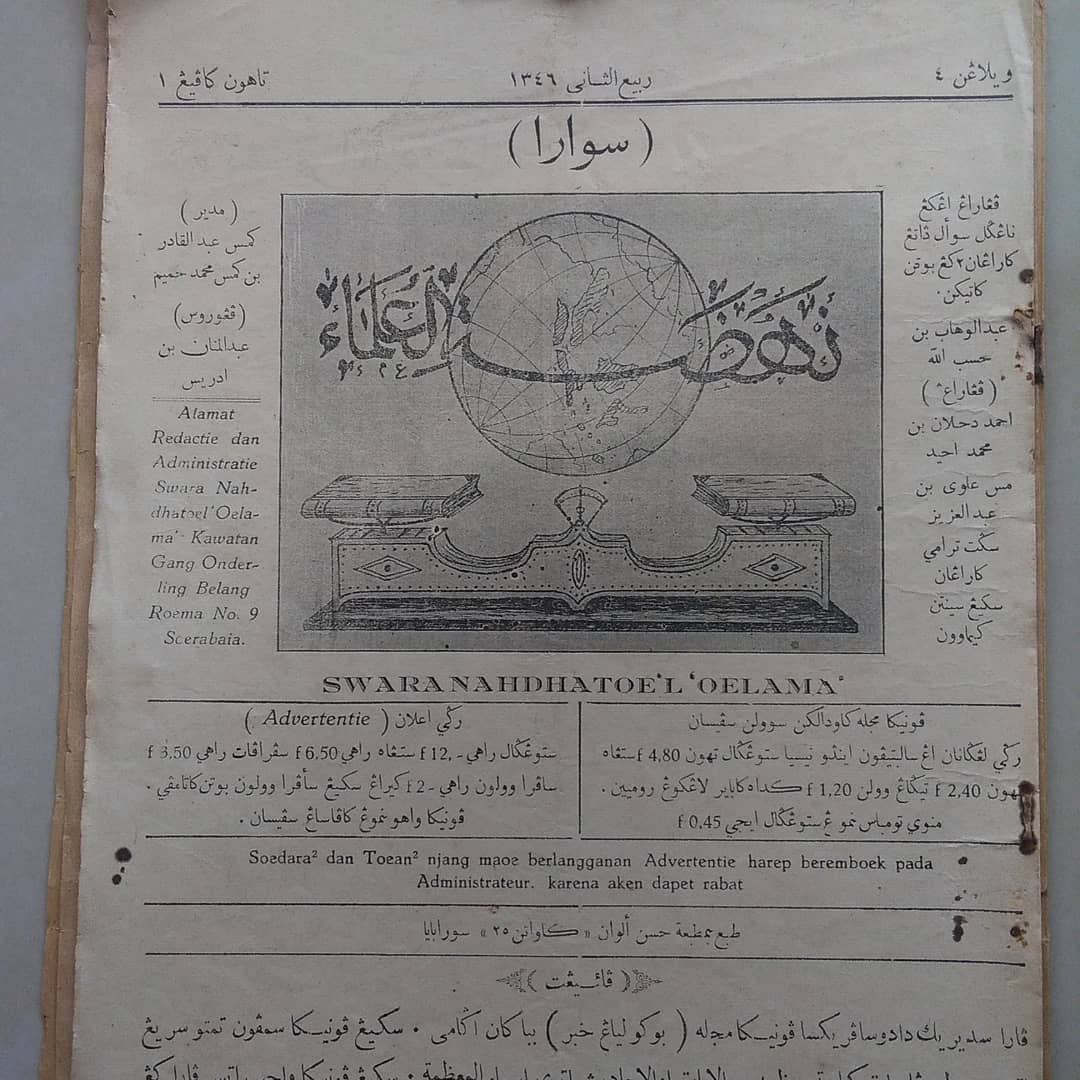 ويلاڠن ٤
ربيع الثانى ١٣٤٦
تاهون كاڤيڠ ١
( سوارا )
ڤڠاراڠ اڠكڠ
ناڠكل سوأل داتڠ
كاراڠان٢ كڠ بوتن
كاتيكن.
عبدالوهاب بن
حسب الله
( ڤڠاراڠ )
احمد دحلان بن
محمد احيد
مس علوى بن
عبد العزيز
سكت ترامي
كاراڠان
سكيڠ سينتن
كيماوون
نهضة العلماء
( مدير )
كمس عبد القادر
بن كمس محمد حميم
(ڤڠوروس)
عبدالمنان بن
ادريس
Alamat
Redactie dan
Administratie
Swara Nah-
dhatoel 'Oela-
ma' Kawatan
Gang Onder-
ling Belang
Roema No. 9
Soerabaia.
SWARA NAHDHATOE'L 'OELAMA'
ڤونيكا مجله كاودالكن سوولن سڤيسان
رڬي لڠڬانان اڠ سالبيڤون ايندونيسيا ستوڠڬال تهون f 4,80 ستڠاه
تهون f 2,40 تيڬاڠ وولن f 1,20 كداه كاباير لاڠكوڠ روميين .
منوي تومباس نموڠ ستوڠڬال ايجي f 0,45
رڬي اعلان ( Advertentie )
ستوڠڬال راهي f 12,- ستڠاه راهي f 6,50 سڤراڤات راهي f 3,50
ساڤرا وولون راهي f 2,- كيراڠ سكيڠ سأڤرا وولون بوتن كاتامڤي .
ڤونيكا واهو نموڠ كاڤاساڠ سڤيسان .
Soedara² dan Toean² njang maoe berlangganan Advertentie harep beremboek pada
Administrateur. karena aken dapet rabat
طبع بمطبعة حسن ألوان « كاواتن ٢٥ » سورابايا
( ڤائيڠت )
ڤارا سدير يك دادوس ماڤريكسا ڤونيكا مجله ( بوكو لياڠ خبر ) بباكان اڬامي . سكيڠ ڤونيكا سمڤون تمتو سريڠ